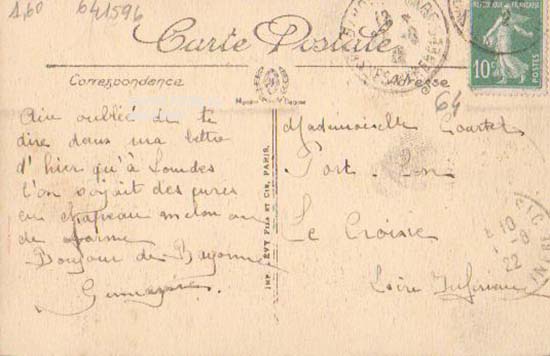 1,60 641596
Carte Postale
Correspondance
Adresse
64
REPUBLIQUE FRANÇAISE
10c
POSTES
oublié de te
dire dans ma lettre
d'hier qu'à Lourdes
l'on voyait des curés
en chapeau melon ou
de
Bonjour de Bayonne
IMP. LEVY FILS ET CIE, PARIS.
Mademoiselle Courtel
Port-Lin
Le Croisic
Loire Inférieure
22